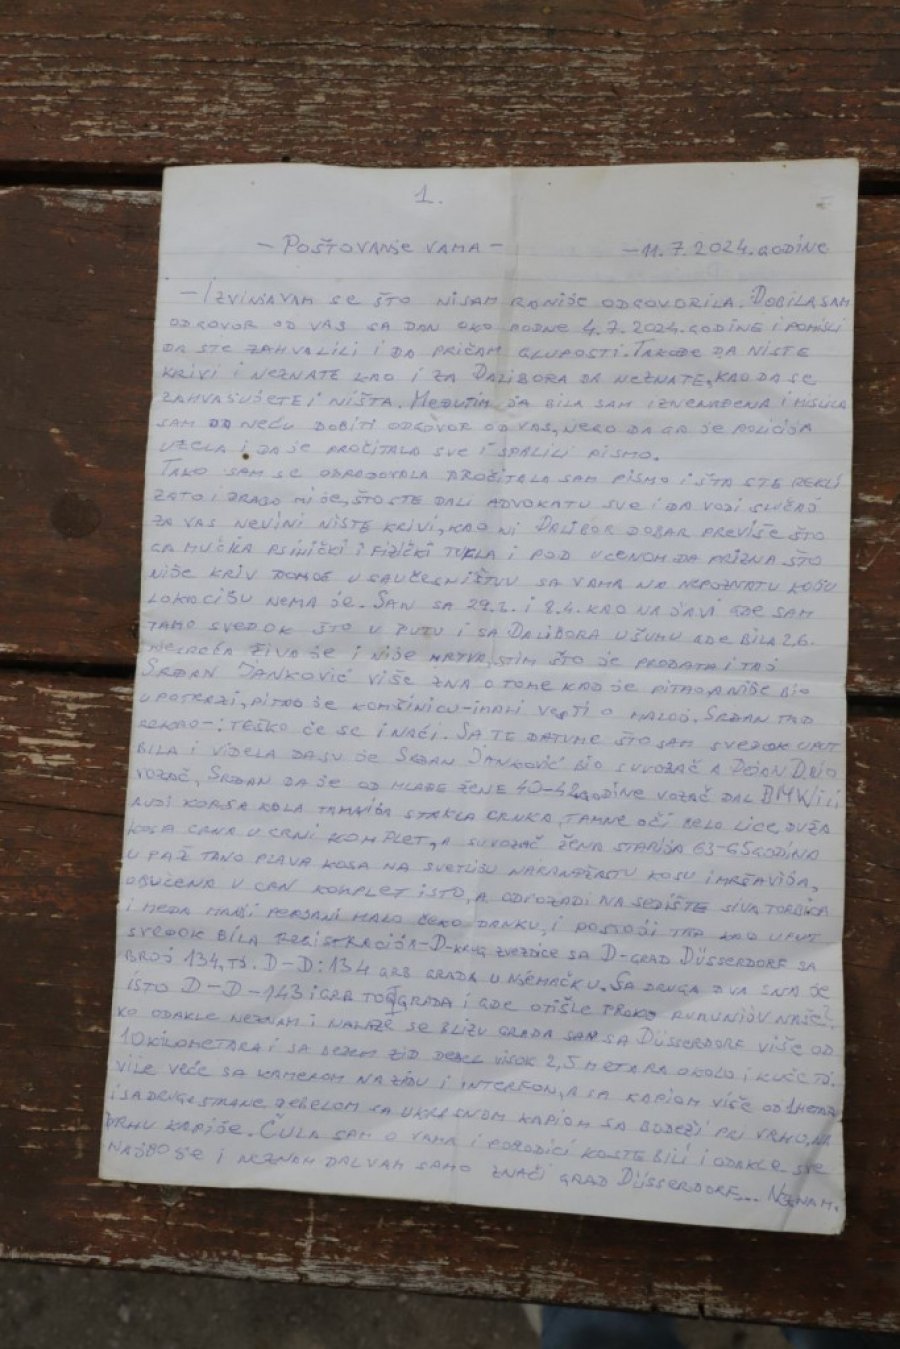 1.
- POŠTOVANJE VAMA - - 11.7.2024. GODINE
- IZVINJAVAM SE ŠTO NISAM RANIJE ODGOVORILA. DOBILA SAM
ODGOVOR OD VAS SA DAN OKO PODNE 4.7.2024. GODINE I POMISLI
DA STE ZAHVALILI I DA PRIČAM GLUPOSTI. TAKOĐE DA NISTE
KRIVI I NEZNATE KAO I ZA DALIBORA DA NEZNATE, KAO DA SE
ZAHVAŠUJETE I NIŠTA. MEĐUTIM JA BILA SAM IZNENAĐENA I MISLILA
SAM DA NEĆU DOBITI ODGOVOR OD VAS, NEGO DA GA JE POLICIJA
UZELA I DA JE PROČITALA SVE I SPALILI PISMO.
TAKO SAM SE ODRADOVALA PROČITALA SAM PISMO I ŠTA STE REKLI
ZATO I DRAGO MI JE, ŠTO STE DALI ADVOKATU SVE I DA VODI SLUČAJ
ZA VAS NEVINI NISTE KRIVI, KAO NI DALIBOR DOBAR PREVIŠE ŠTO
GA MUČILA PSIHIČKI I FIZIČKI TUKLA I POD UCENOM DA PRIZNA ŠTO
NIJE KRIV U SAUČESNIŠTVU SA VAMA NA NEPOZNATU
LOKACIJU NEMA JE. SAN SA 29.2. I 2.4. KAO NA JAVI GDE SAM
TAMO SVEDOK ŠTO U PUTU I SA DALIBORA U ŠUMU GDE BILA 26.
ŽIVA JE I NIJE MRTVA, STIM ŠTO JE PRODATA I TAJ
SRĐAN JANKOVIĆ VIŠE ZNA O TOME KAD JE PITAO, A NIJE BIO
U POTRAZI, PITAO JE KOMŠINICU - IMALI VESTI O MALOJ. SRĐAN TAD
REKAO -: TEŠKO ĆE SE I NAĆI. SA TE DATUME ŠTO SAM SVEDOK UPUT
BILA I VIDELA DA SU JE SRĐAN JANKOVIĆ BIO SUVOZAČ A DEJAN D. BIO
VOZAČ, SRĐAN DA JE OD MLADE ŽENE 40-42 GODINE VOZAČ DAL BMW ILI
AUDI KORSA KOLA TAMNIJA STAKLA CRNKA, TAMNE OČI BELO LICE, DUŽA
KOSA CRNA U CRNI KOMPLET, A SUVOZAČ ŽENA STARIJA 63-65 GODINA
U PAŽ TANO PLAVA KOSA NA SVETLIJU NARANDŽASTU KOSU I MRŠAVIJA,
OBUČENA U CRN KOMPLET ISTO, A ODPOZADI NA SEDIŠTE SIVA TORBICA
I MEDA MANJI MALO DANKU, I POSTOJI TAD KAO UPUT
SVEDOK BILA REGISTRACIJA - D - KRUG ZVEZDICE SA D - GRAD DÜSSERDORF SA
BROJ 134, TJ. D - D : 134 GRB GRADA U NJEMAČKU. SA DRUGA DVA SNA JE
ISTO D - D - 143 I GRB TOG GRADA I GDE OTIŠLE PREKO RUMUNIJU NAŠEJ
KO ODAKLE NEZNAM I NALAZE SE BLIZU GRADA SAM SA DÜSSERDORF VIŠE OD
10 KILOMETARA I SA BEDEM ZID DEBEL VISOK 2,5 METARA OKOLO I KUĆE TJ.
VILE VEĆE SA KAMEROM NA ZIDU I INTERFON, A SA KAPIOM VIŠE OD 1 METAR
I SA DRUGE STRANE DEBELOM SA UKRASNOM KAPIOM SA BODEŽI PRI VRHU, NA
VRHU KAPIJE. ČULA SAM O VAMA I PORODICI KO STE BILI I ODAKLE SVE
NAJBOJE I NEZNAM DAL VAM SAMO ZNAČI GRAD DÜSSERDORF... NEZNAM.